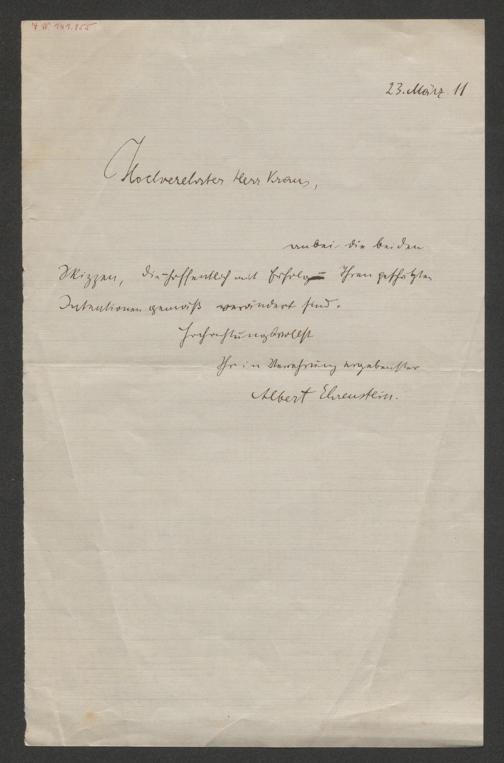 23. März 11
Hochverehrter Herr Kraus,
anbei die beiden
Skizzen, die hoffentlich mit Erfolg Ihren geschätzten
Intentionen gemäß verändert sind.
Hochachtungsvollst
Ihr in Verehrung ergebenster
Albert Ehrenstein.